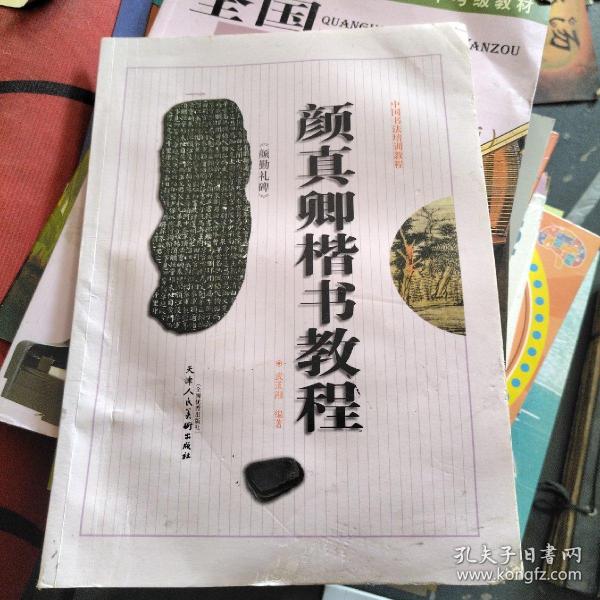 全国
QUANG
ANZOU
级教材
中国书法培训教程
颜真卿楷书教程
《颜勤礼碑》
编著
天津人民美術出版社
(全国优秀出版社)
孔夫子旧书网
www.kongfz.com